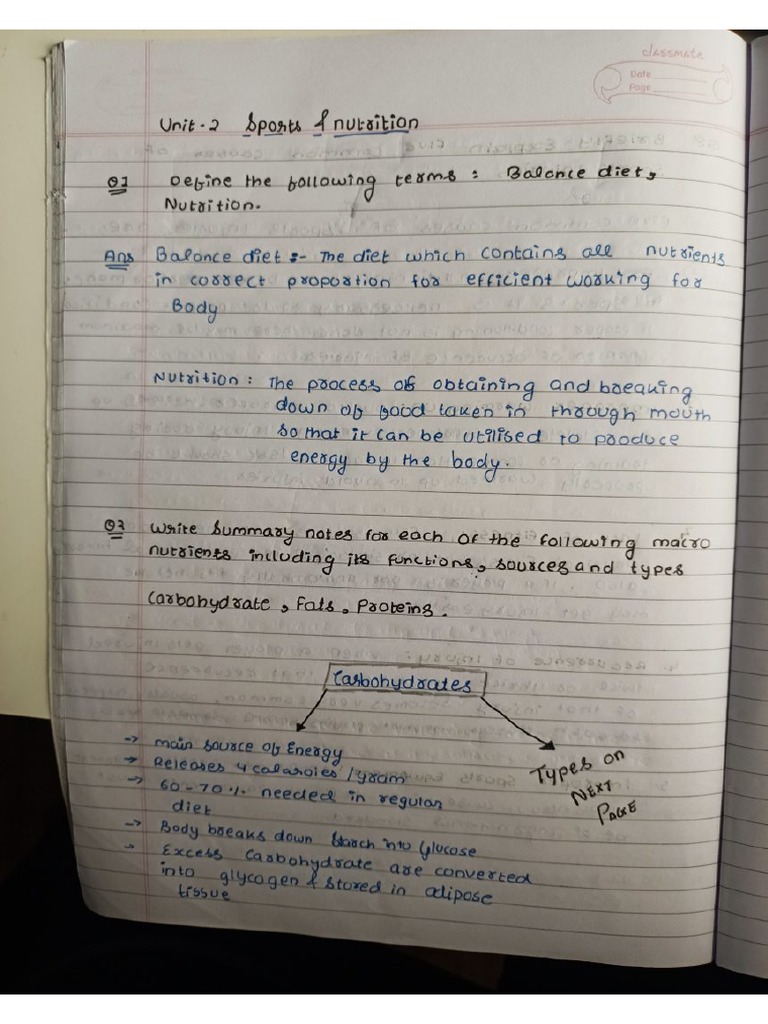 classmate
Date
Page
Unit-2 Sports & nutrition
Q1 Define the following terms: Balance diet,
Nutrition.
Ans Balance diet :- The diet which contains all nutrients
in correct proportion for efficient working for
Body
Nutrition : The process of obtaining and breaking
down of food taken in through mouth
so that it can be utilised to produce
energy by the body.
Q2 Write summary notes for each of the following macro
nutrients including its functions, sources and types
Carbohydrate, Fats, Proteins.
Carbohydrates
-> main source of Energy
-> Releases 4 caloroies / gram
-> 60-70% needed in regular
diet
-> Body breaks down starch into glucose
-> Excess Carbohydrate are converted
into glycogen & stored in adipose
tissue
Types on
NEXT
PAGE